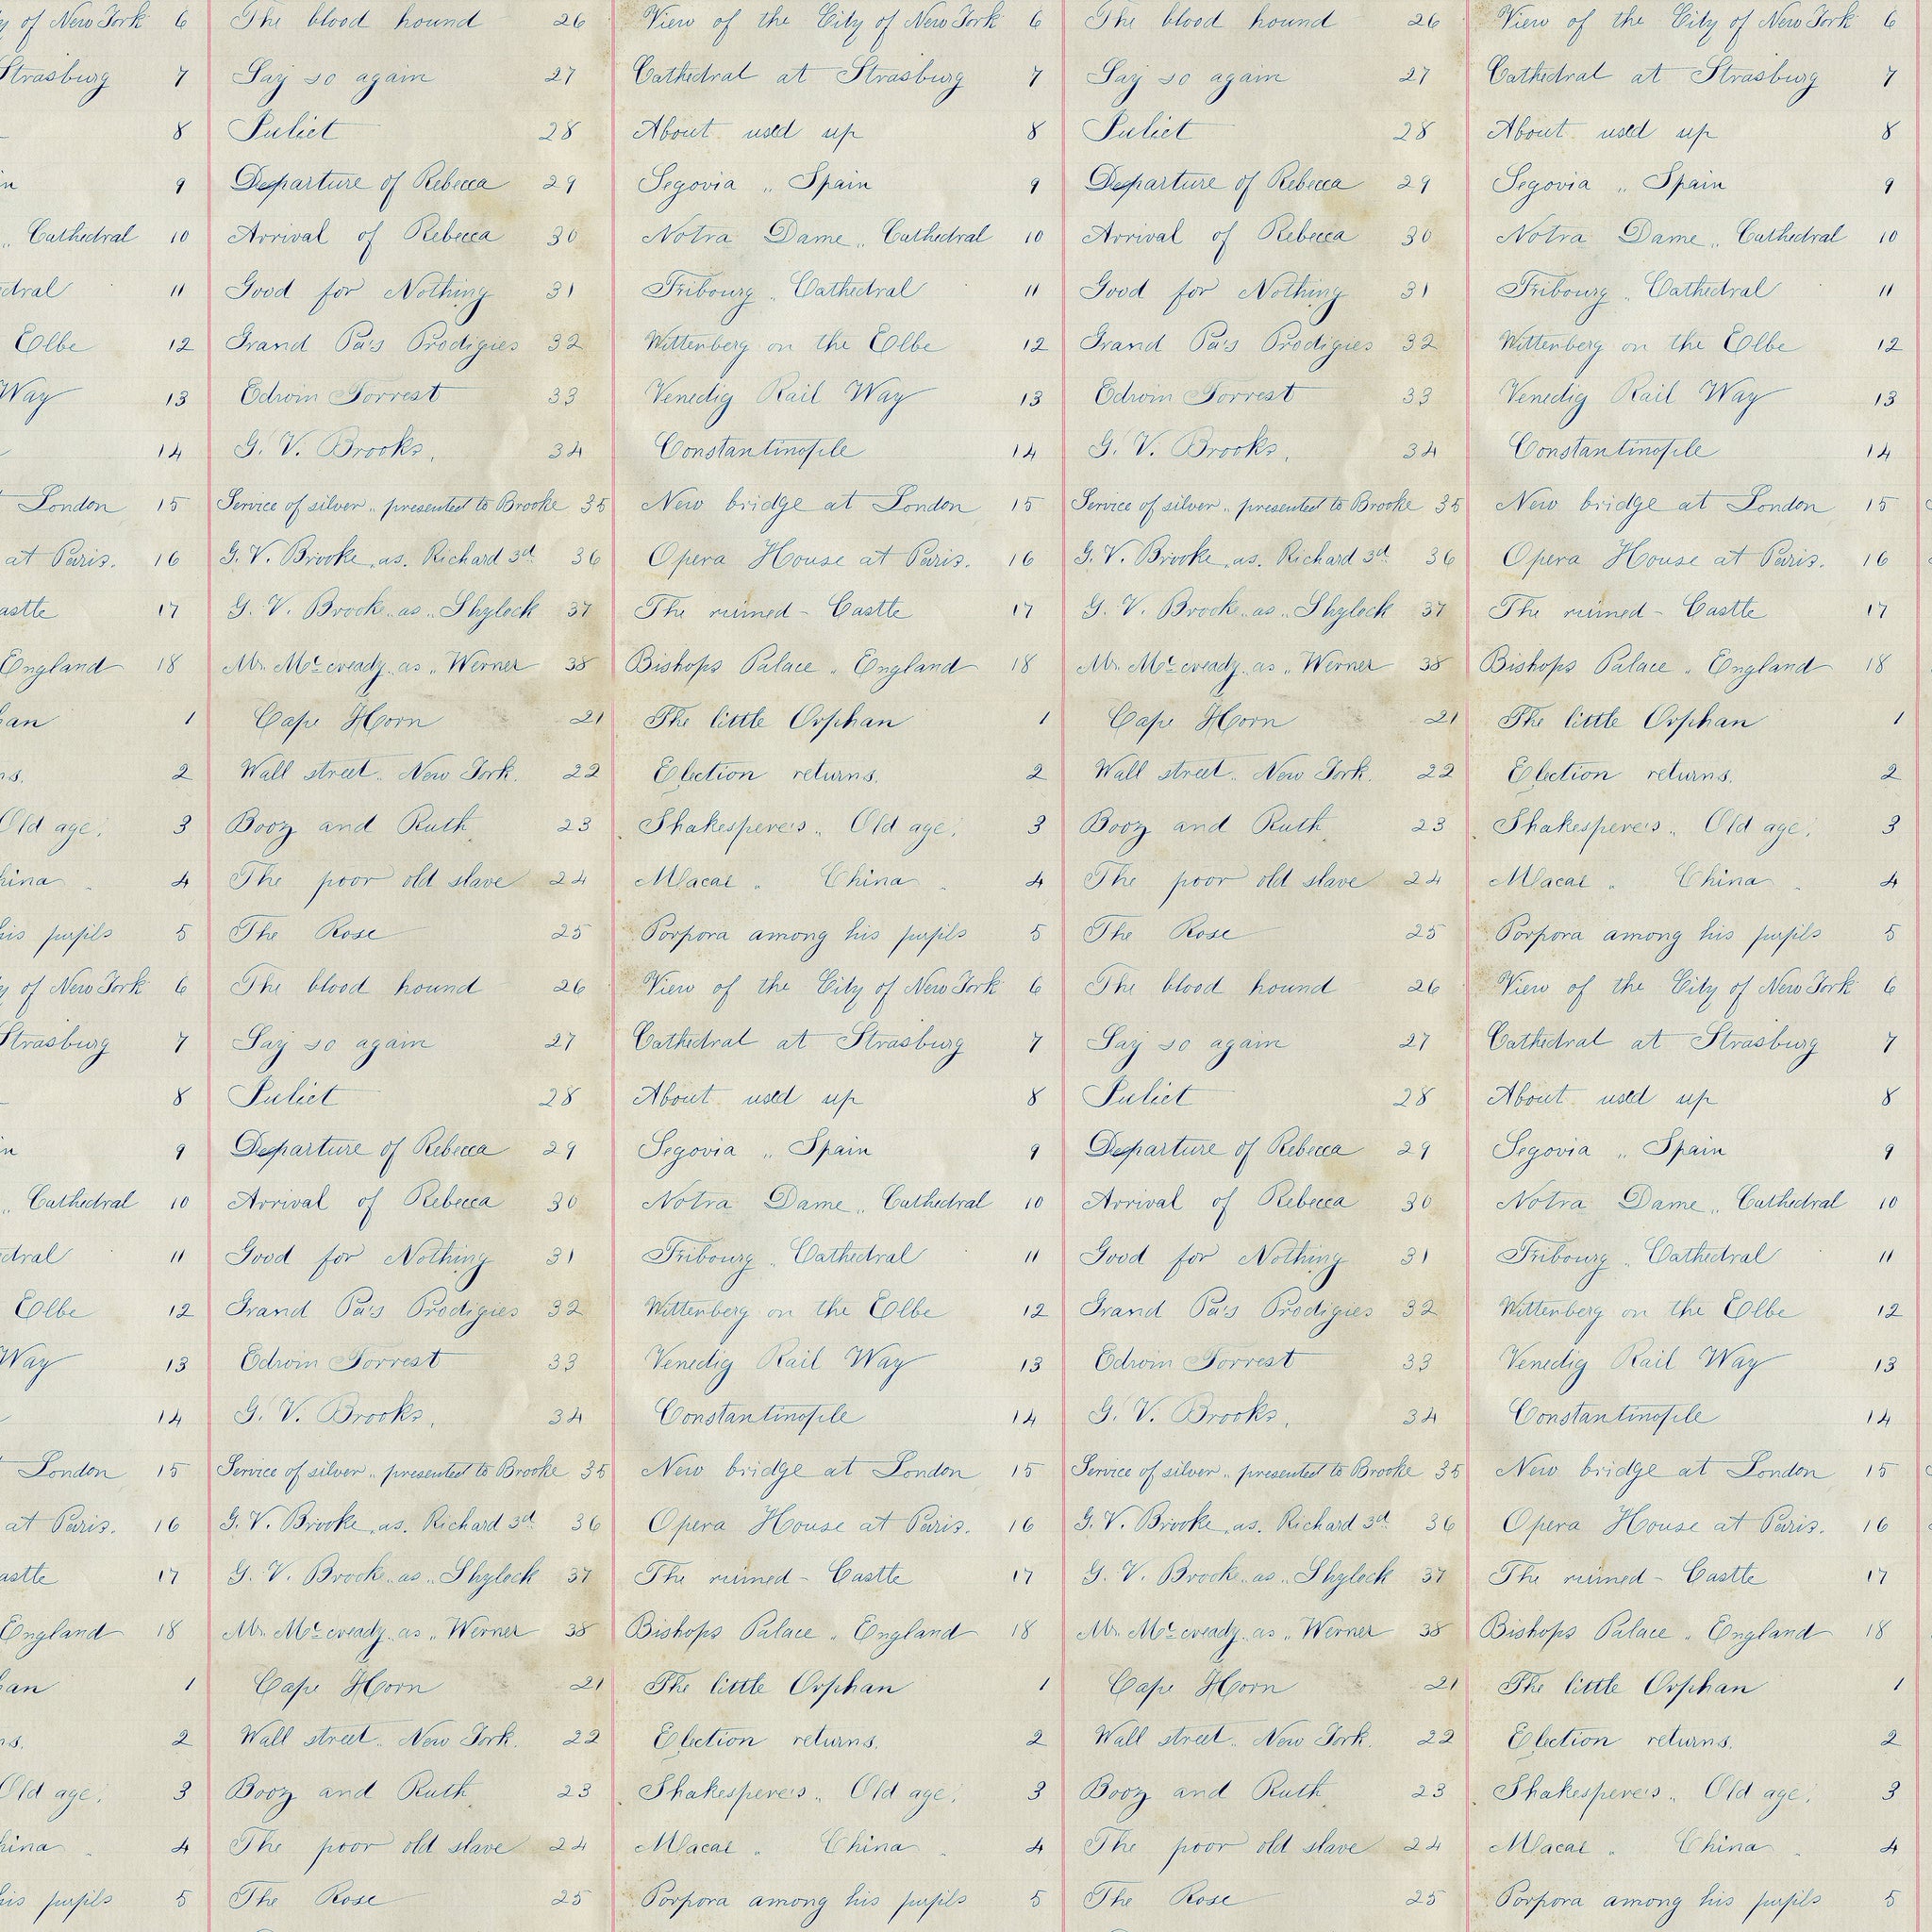 of New York 6 The blood hound 26 View of the City of New York 6 The blood hound 26 View of the City of New York 6
Strasburg 7 Say so again 27 Cathedral at Strasburg 7 Say so again 27 Cathedral at Strasburg 7
8 Juliet 28 About used up 8 Juliet 28 About used up 8
9 Departure of Rebecca 29 Segovia „ Spain 9 Departure of Rebecca 29 Segovia „ Spain 9
Cathedral 10 Arrival of Rebecca 30 Notra Dame „ Cathedral 10 Arrival of Rebecca 30 Notra Dame „ Cathedral 10
11 Good for Nothing 31 Fribourg „ Cathedral 11 Good for Nothing 31 Fribourg „ Cathedral 11
Elbe 12 Grand Pa's Prodigies 32 Wittenberg on the Elbe 12 Grand Pa's Prodigies 32 Wittenberg on the Elbe 12
Way 13 Edwin Forrest 33 Venedig Rail Way 13 Edwin Forrest 33 Venedig Rail Way 13
14 G. V. Brooks. 34 Constantinople 14 G. V. Brooks. 34 Constantinople 14
London 15 Service of silver „ presented to Brooke 35 New bridge at London 15 Service of silver „ presented to Brooke 35 New bridge at London 15
at Paris. 16 G. V. Brooke, as. Richard 3d 36 Opera House at Paris. 16 G. V. Brooke, as. Richard 3d 36 Opera House at Paris. 16
17 G. V. Brooke „ as „ Shylock 37 The ruined - Castle 17 G. V. Brooke „ as „ Shylock 37 The ruined - Castle 17
England 18 Mr. Mc cready. as „ Werner 38 Bishops Palace „ England 18 Mr. Mc cready. as „ Werner 38 Bishops Palace „ England 18
1 Cape Horn 21 The little Orphan 1 Cape Horn 21 The little Orphan 1
2 Wall street „ New York. 22 Election returns. 2 Wall street „ New York. 22 Election returns. 2
Old age. 3 Booz and Ruth 23 Shakespere's „ Old age. 3 Booz and Ruth 23 Shakespere's „ Old age. 3
4 The poor old slave 24 China 4 The poor old slave 24 China 4
his pupils 5 The Rose 25 Porpora among his pupils 5 The Rose 25 Porpora among his pupils 5
of New York 6 The blood hound 26 View of the City of New York 6 The blood hound 26 View of the City of New York 6
Strasburg 7 Say so again 27 Cathedral at Strasburg 7 Say so again 27 Cathedral at Strasburg 7
8 Juliet 28 About used up 8 Juliet 28 About used up 8
9 Departure of Rebecca 29 Segovia „ Spain 9 Departure of Rebecca 29 Segovia „ Spain 9
Cathedral 10 Arrival of Rebecca 30 Notra Dame „ Cathedral 10 Arrival of Rebecca 30 Notra Dame „ Cathedral 10
11 Good for Nothing 31 Fribourg „ Cathedral 11 Good for Nothing 31 Fribourg „ Cathedral 11
Elbe 12 Grand Pa's Prodigies 32 Wittenberg on the Elbe 12 Grand Pa's Prodigies 32 Wittenberg on the Elbe 12
Way 13 Edwin Forrest 33 Venedig Rail Way 13 Edwin Forrest 33 Venedig Rail Way 13
14 G. V. Brooks. 34 Constantinople 14 G. V. Brooks. 34 Constantinople 14
London 15 Service of silver „ presented to Brooke 35 New bridge at London 15 Service of silver „ presented to Brooke 35 New bridge at London 15
at Paris. 16 G. V. Brooke, as. Richard 3d 36 Opera House at Paris. 16 G. V. Brooke, as. Richard 3d 36 Opera House at Paris. 16
17 G. V. Brooke „ as „ Shylock 37 The ruined - Castle 17 G. V. Brooke „ as „ Shylock 37 The ruined - Castle 17
England 18 Mr. Mc cready. as „ Werner 38 Bishops Palace „ England 18 Mr. Mc cready. as „ Werner 38 Bishops Palace „ England 18
1 Cape Horn 21 The little Orphan 1 Cape Horn 21 The little Orphan 1
2 Wall street „ New York. 22 Election returns. 2 Wall street „ New York. 22 Election returns. 2
Old age. 3 Booz and Ruth 23 Shakespere's „ Old age. 3 Booz and Ruth 23 Shakespere's „ Old age. 3
4 The poor old slave 24 China 4 The poor old slave 24 China 4
his pupils 5 The Rose 25 Porpora among his pupils 5 The Rose 25 Porpora among his pupils 5